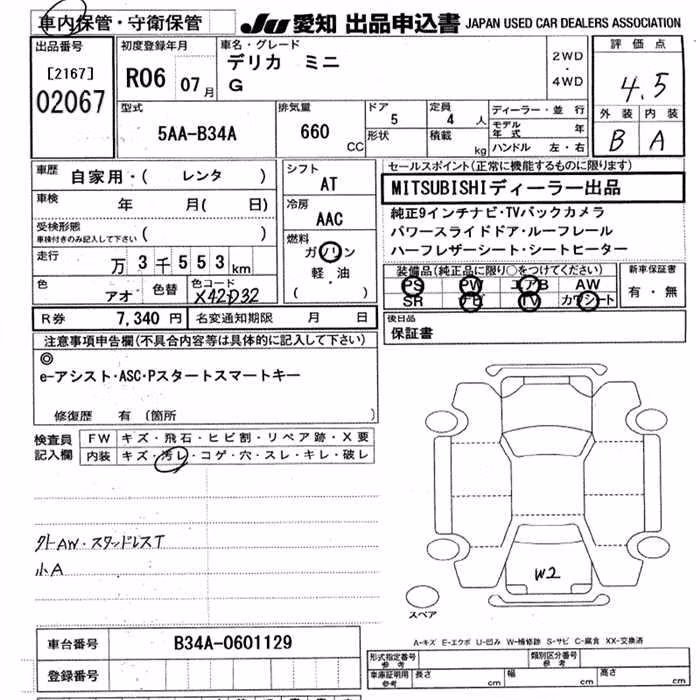 車内保管・守衛保管
JU 愛知 出品申込書 JAPAN USED CAR DEALERS ASSOCIATION
出品番号
[2167]
02067
初度登録年月
R06 07月
車名・グレード
デリカ ミニ
G
2WD
・
4WD
評価点
4.5
外装 内装
B A
型式
5AA-B34A
排気量
660 CC
ドア
5
定員
4 人
形状
積載 kg
ディーラー・並行
モデル年式 年
ハンドル 左・右
車歴
自家用・( レンタ )
車検 年 月( 日)
受検形態
車検付きのみ記入して下さい ( )
走行
万 3 千 5 5 3 km
色
アオ
色替
色コード
X42D32
シフト
AT
冷房
AAC
燃料
ガソリン
軽・油
( )
セールスポイント(正常に機能するものに限ります)
MITSUBISHIディーラー出品
純正9インチナビ・TVバックカメラ
パワースライドドア・ルーフレール
ハーフレザーシート・シートヒーター
装備品(純正品に限り○をつけてください)
PS PW エアB AW
SR ナビ TV カワシート
新車保証書
有・無
R券 7,340 円 名変通知期限 月 日
後日品
保証書
注意事項申告欄(不具合内容等は具体的に記入して下さい)
◎
e-アシスト・ASC・Pスタートスマートキー
修復歴 有 (箇所
検査員記入欄
FW キズ・飛石・ヒビ割・リペア跡・X要
内装 キズ・汚レ・コゲ・穴・スレ・キレ・破レ
外AW・スタッドレスT
小A
W2
スペア
A-キズ E-エクボ U-凹み W-補修跡 S-サビ C-腐食 XX-交換済
車台番号 B34A-0601129
登録番号
形式指定番号 参考
類別区分番号 参考
車庫証明用 参考 長さ cm 幅 cm 高さ cm